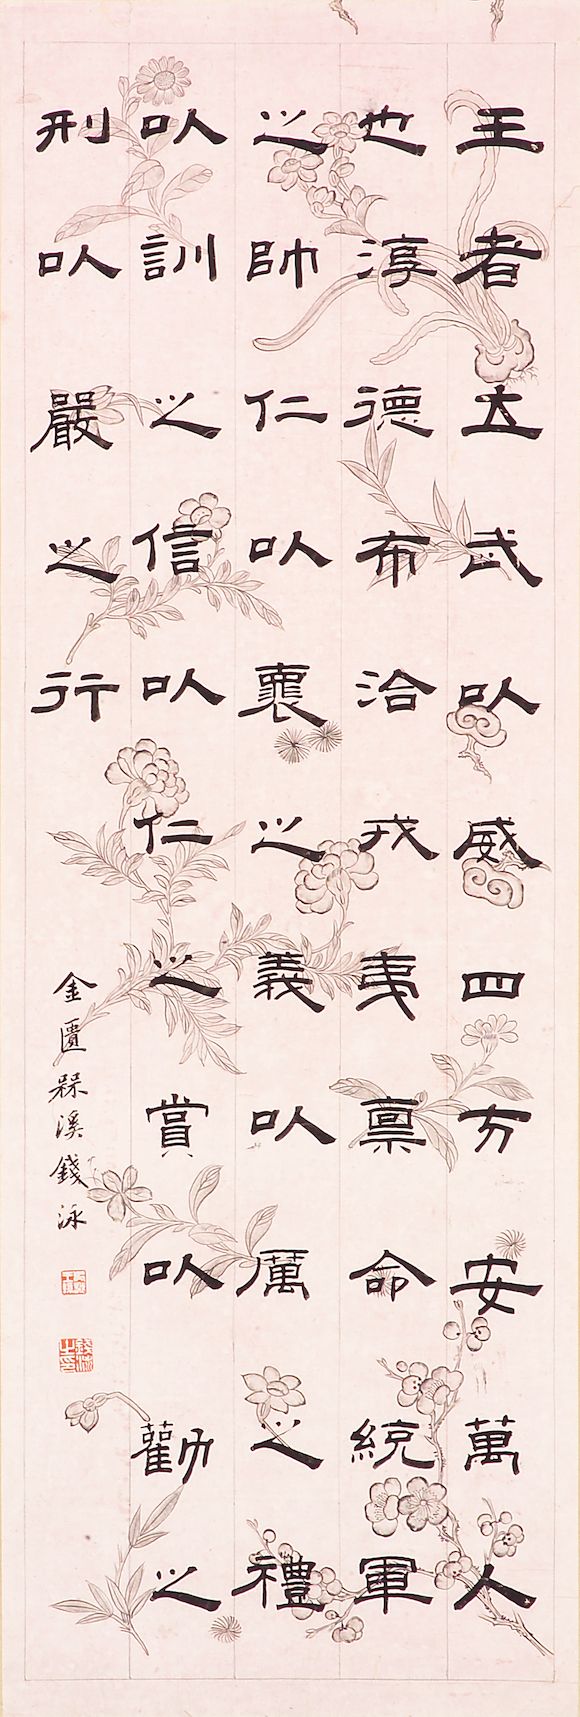 王者立武以威四方安萬人
也淳德布洽戎夷禀命統軍
之帥仁以褱之義以厲之禮
以訓之信以仁之賞以勸之
刑以嚴之行
金匱槑溪錢泳
錢泳之印